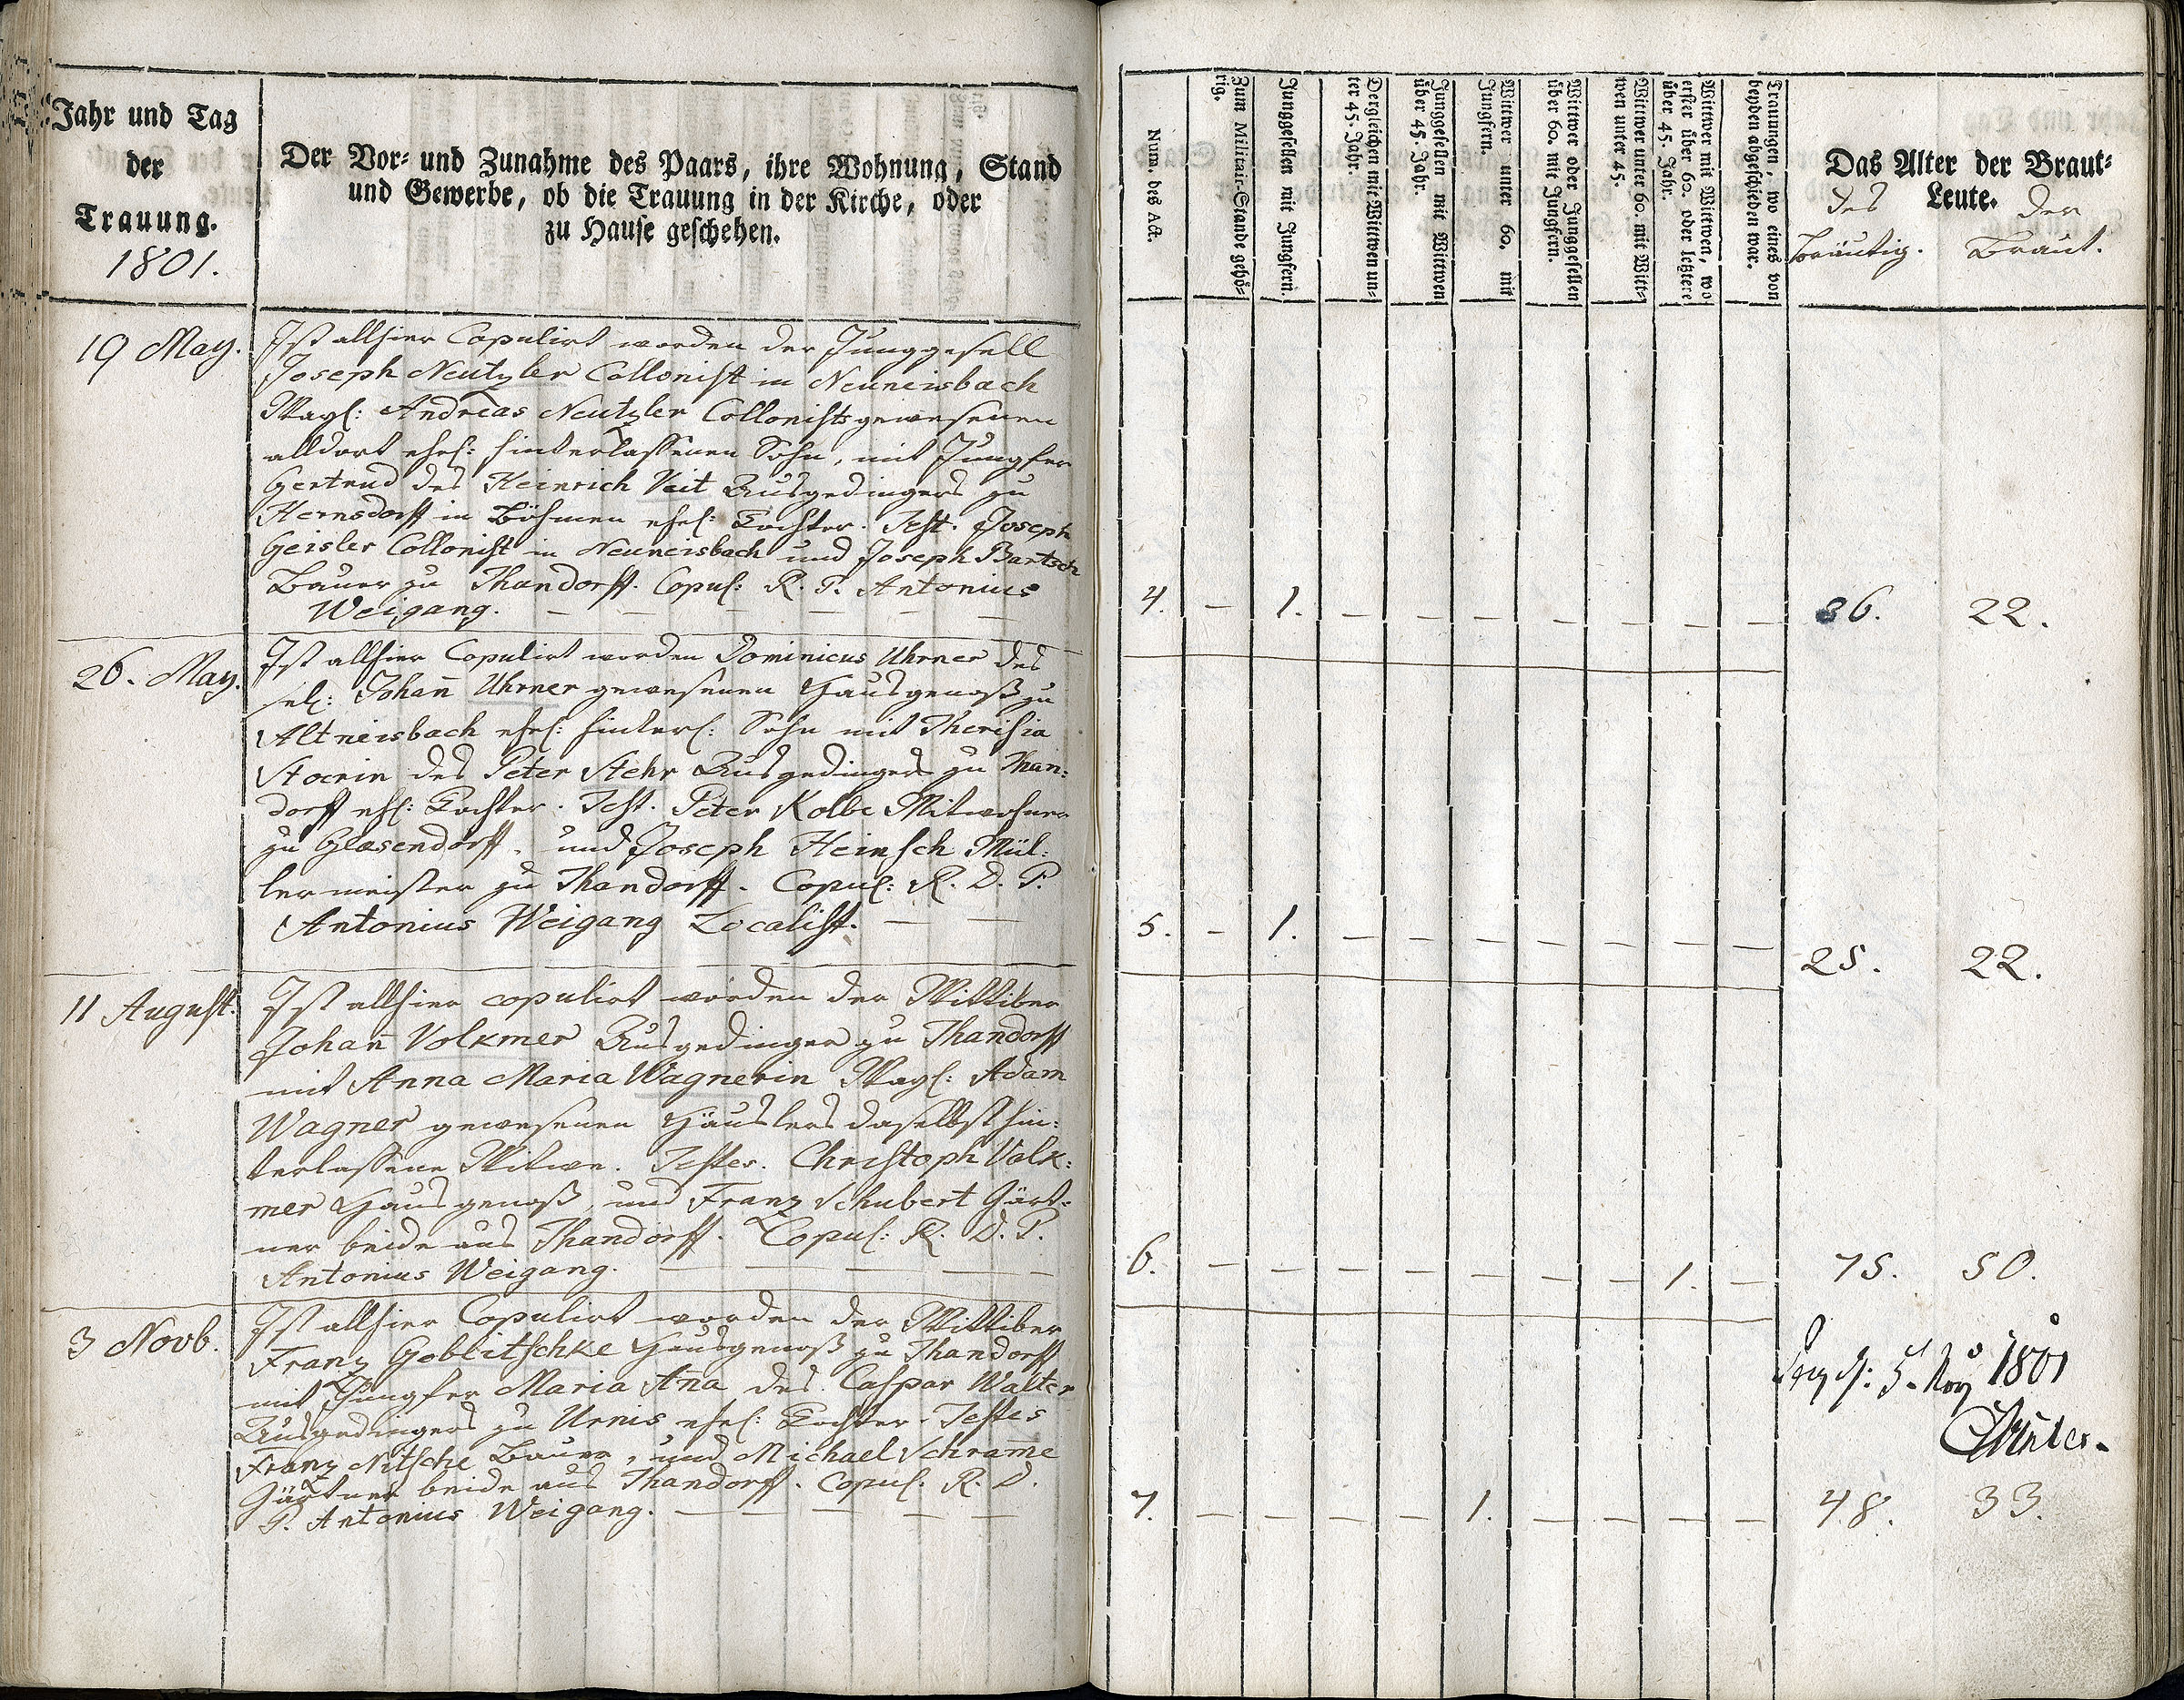 Jahr und Tag
der
Trauung.
1801.
Der Vor- und Zunahme des Paars, ihre Wohnung, Stand
und Gewerbe, ob die Trauung in der Kirche, oder
zu Hause geschehen.
19 May.
Ist allhier Copulirt worden der Junggesell
Joseph Neutzler Collonist in Neuneisbach
Weyl: Andreas Neutzler Collonists gewesenen
alldort ehel: hinterlassenen Sohn, mit Jungfer
Gertrud des Heinrich Veit Ausgedingers zu
Hernsdorff in Böhmen ehel: Tochter. Test. Joseph
Geisler Collonist in Neuneisbach und Joseph Bartsch
Bauer zu Thandorff. Copul: R. P. Antonius
Weigang.
26. May.
Ist allhier Copulirt worden Dominicus Uhrner des
sel: Johan̄ Uhrner gewesenen Hausgenoß zu
Altneisbach ehel: hinterl: Sohn mit Therisia
Stoerin des Peter Stehr Ausgedinger zu Than:
dorff ehl: Tochter. Test. Peter Kolbe Mitwohner
zu Glasendorff, und Joseph Heinsch Mül:
lermeister zu Thandorff. Copul: R. D. P.
Antonius Weigang Localist.
11 August.
Ist allhier copulirt worden der Wittiber
Johan̄ Volkmer Ausgedinger zu Thandorff
mit Anna Maria Wagnerin Weyl: Adam
Wagner gewesenen Häuslers daselbst hin:
terlassene Witwe. Testes. Christoph Volk:
mer Hausgenoß, und Franz Schubert Gärt-
ner beide aus Thandorff. Copul: R. D. P.
Antonius Weigang.
3 Novb.
Ist allhier Copulirt worden der Wittiber
Franz Goblitschke Hausgenoß zu Thandorff
mit Jungfer Maria An̄a des Caspar Walter
Ausgedingers zu Urnis ehel: Tochter. Testes
Franz Nitsche Bauer, und Michael Schram̄e
Gärtner beide aus Thandorff. Copul. R. D.
P. Antonius Weigang.
Num. des Act.
Zum Militair-Stande gehö-
rig.
Junggesellen mit Jungfern.
Dergleichen mit Wittwen un-
ter 45. Jahr.
Junggesellen mit Wittwen
über 45. Jahr.
Wittwer unter 60. mit
Jungfern.
Wittwer oder Junggesellen
über 60. mit Jungfern.
Wittwer unter 60. mit Witt-
wen unter 45.
Wittwer mit Wittwen, wo
erster über 60. oder letztere
über 45. Jahr.
Trauungen, wo eines von
beyden abgeschieden war.
Das Alter der Braut-
Leute.
des der
Bräutig. Braut.
4. – 1. – – – – – – – 36. 22.
5. – 1. – – – – – – – 25. 22.
6. – – – – – – – 1. – 75. 50.
5. 1801
7. – – – – 1. – – – – 48. 33.